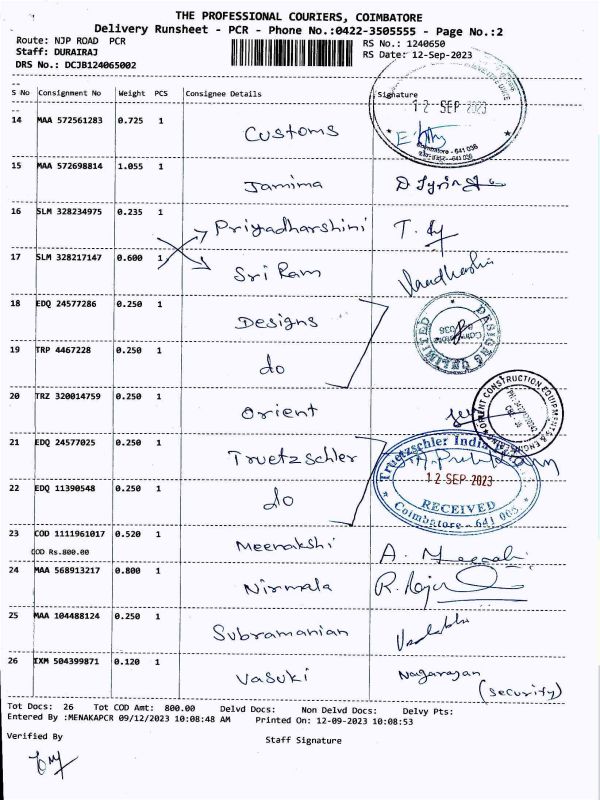 THE PROFESSIONAL COURIERS, COIMBATORE
Delivery Runsheet - PCR - Phone No.:0422-3505555 - Page No.:2
Route: NJP ROAD PCR
RS No.: 1240650
Staff: DURAIRAJ
RS Date: 12-Sep-2023
DRS No.: DCJB124065002
S No Consignment No Weight PCS Consignee Details Signature
12 SEP 2023
14 MAA 572561283 0.725 1 Customs
Coimbatore - 641 036
15 MAA 572698814 1.055 1 Jamima
16 SLM 328234975 0.235 1 Priyadharshini T.
17 SLM 328217147 0.600 1 Sri Ram
18 EDQ 24577286 0.250 1 Designs
DESIGNS UNLIMITED
19 TRP 4467228 0.250 1 do
20 TRZ 320014759 0.250 1 Orient
ORIENT CONSTRUCTION EQUIPMENTS & ENGINEERING
21 EDQ 24577025 0.250 1 Truetzschler
Truetzschler India
12 SEP 2023
22 EDQ 11390548 0.250 1 do
RECEIVED
Coimbatore - 641 005
23 COD 1111961017 0.520 1 Meenakshi A. Meenakshi
COD Rs.800.00
24 MAA 568913217 0.800 1 Nirmala
25 MAA 104488124 0.250 1 Subramanian
26 IXM 504399871 0.120 1 Vasuki Nagarajan
(Security)
Tot Docs: 26 Tot COD Amt: 800.00 Delvd Docs: Non Delvd Docs: Delvy Pts:
Entered By :MENAKAPCR 09/12/2023 10:08:48 AM Printed On: 12-09-2023 10:08:53
Verified By
Staff Signature